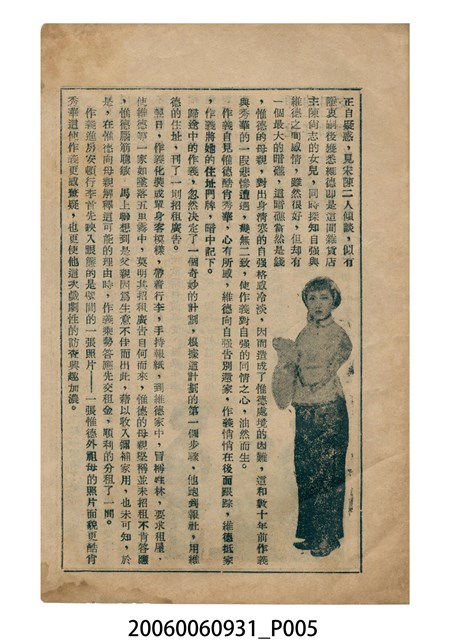 正自疑惑，見宋陳二人傾談，似有
隱衷嗣後獲悉維德卽是這間雜貨店
主陳向志的女兒，同時探知自强與
維德之間感情，雖然很好，但却有
一個最大的暗礁，這暗礁當然是錢
，惟德的母親，對出身清寒的自强格或冷淡，因而造成了惟德處境的困難，這和數十年前作義
與秀華的一段悲慘遭遇，幾無二致，使作義對自强的同情之心，油然而生。
作義自見惟德酷肖秀華，心有所感，維德向自强告別還家，作義悄悄在後面跟踪，維德抵家
，作義將她的住址門牌，暗中記下。
歸途中的作義，忽然決定了一個奇妙的計劃，根據這計劃的第一個步驟，他跑到報社，用維
德的住址，刊了一則招租廣告。
翌日，作義化裝成單身客模樣，帶着行李，手持報紙，到維德家中，冒稱姓林，要求租屋，
使維德第一家如墜落五里霧中，莫明其招租廣告自何而來，惟德的母親堅稱並未招租不肯答應
，惟德腦筋聰敏，馬上聯想到是父親因爲生意不佳而出此，藉以收入彌補家用，也未可知，於
是，在惟德向母親解釋這可能的理由時，作義乘勢答應先交租金，順利的分租了一間。
作義進房安頓行李首先映入眼簾的是壁間的一張照片——一張惟德外祖母的照片面貌更酷肖
秀華這使作義更感驚疑，也更使他這次戲劇性的訪查興趣加濃。
20060060931_P005